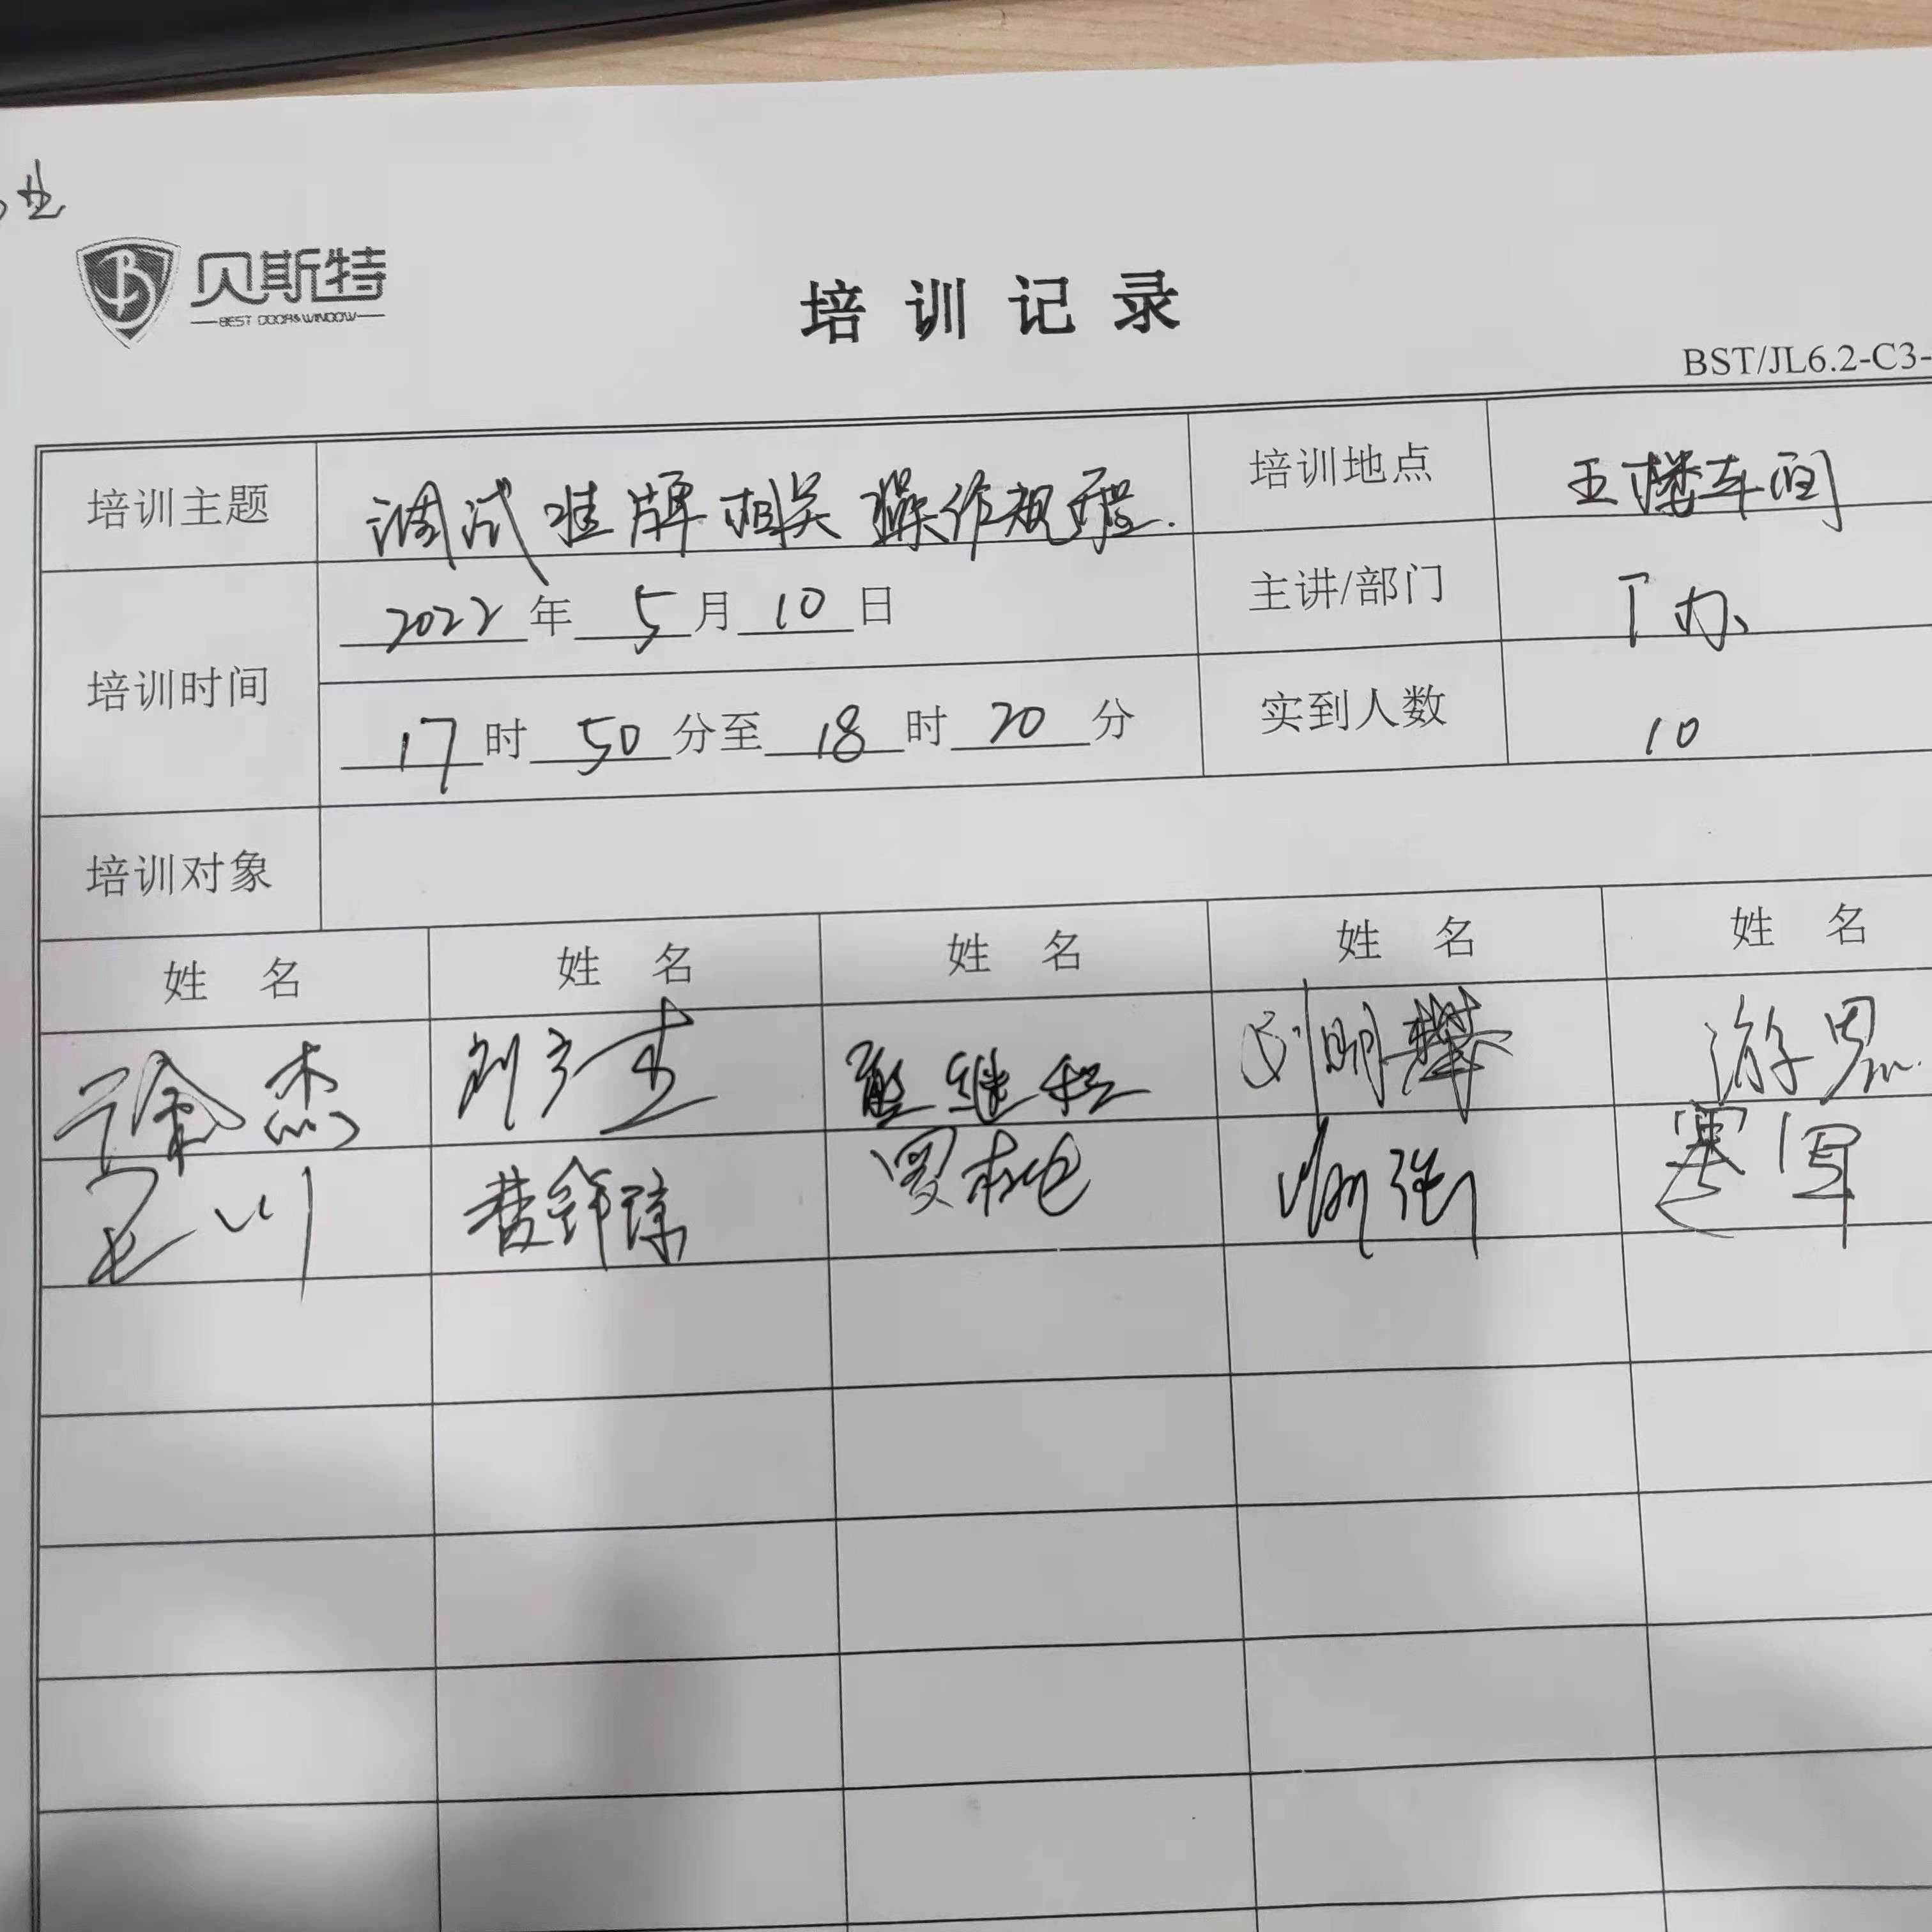 贝斯特
BEST DOOR&WINDOW
培训记录
BST/JL6.2-C3-
培训主题 调试挂牌相关操作规程. 培训地点 五楼车间
培训时间 2022年5月10日 主讲/部门 丁办
17时50分至18时20分 实到人数 10
培训对象
姓名 姓名 姓名 姓名 姓名
徐杰 刘明攀 游恩